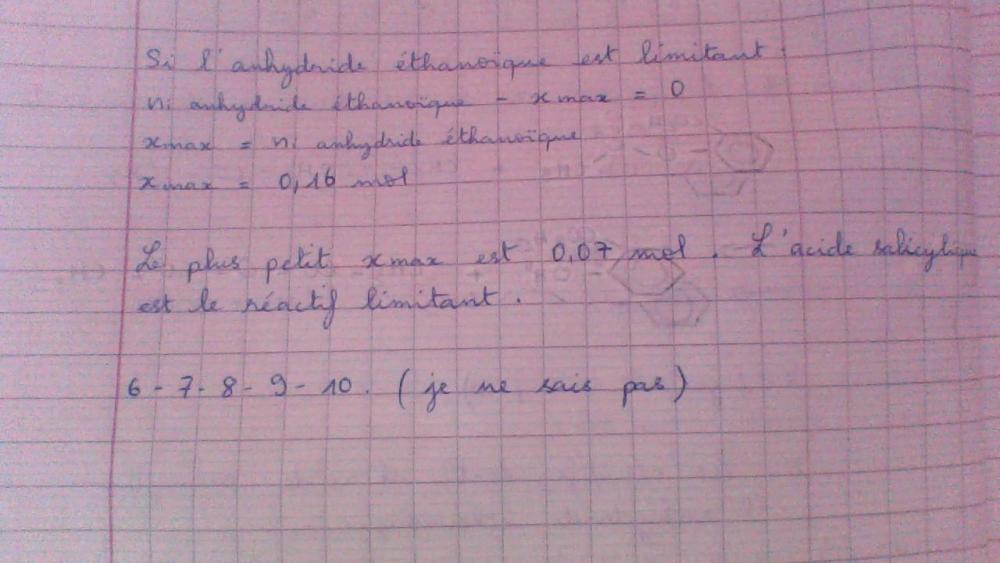 Si l'anhydride éthanoïque est limitant :
ni anhydride éthanoïque - xmax = 0
xmax = ni anhydride éthanoïque
xmax = 0,16 mol
Le plus petit xmax est 0,07 mol. L'acide salicylique
est le réactif limitant.
6-7-8-9-10. (je ne sais pas)